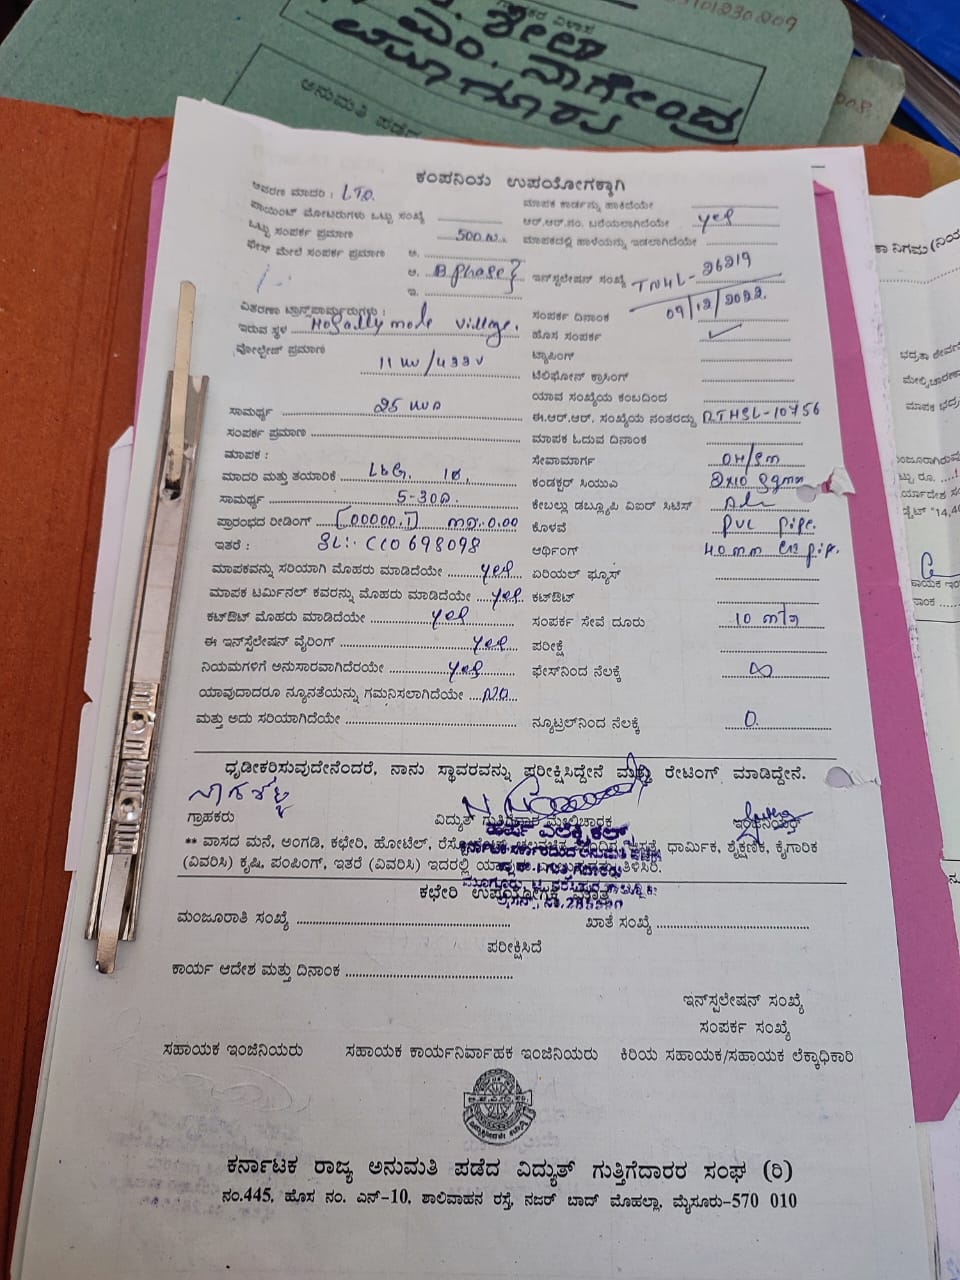 ಗ್ರಾಹಕರ ವಿಳಾಸ
ಶೀಲಾ
ಎಂ. ನಾಗೇಂದ್ರ
ಅನುಮತಿ ಪಡೆದ
ಕಂಪನಿಯ ಉಪಯೋಗಕ್ಕಾಗಿ
ಆವರಣ ಮಾದರಿ :
ಪಾಯಿಂಟ್ ಮೋಟರುಗಳು ಒಟ್ಟು ಸಂಖ್ಯೆ
ಒಟ್ಟು ಸಂಪರ್ಕ ಪ್ರಮಾಣ 500
ಫೇಸ್ ಮೇಲೆ ಸಂಪರ್ಕ ಪ್ರಮಾಣ ಅ.
ಆ. B phase
ಇ.
ವಿತರಣಾ ಟ್ರಾನ್ಸ್‌ಫಾರ್ಮರುಗಳು :
ಇರುವ ಸ್ಥಳ Hosally mode village.
ವೋಲ್ಟೇಜ್ ಪ್ರಮಾಣ
11 KV/433V
ಸಾಮರ್ಥ್ಯ 25 KVA
ಸಂಪರ್ಕ ಪ್ರಮಾಣ
ಮಾಪಕ :
ಮಾದರಿ ಮತ್ತು ತಯಾರಿಕೆ L&G. 1Ø.
ಸಾಮರ್ಥ್ಯ 5-30A.
ಪ್ರಾರಂಭದ ರೀಡಿಂಗ್ [00000.1] MD:0.00
ಇತರೆ : SL:- CC0698098
ಮಾಪಕವನ್ನು ಸರಿಯಾಗಿ ಮೊಹರು ಮಾಡಿದೆಯೇ yes
ಮಾಪಕ ಟರ್ಮಿನಲ್ ಕವರನ್ನು ಮೊಹರು ಮಾಡಿದೆಯೇ yes
ಕಟ್‌ಔಟ್ ಮೊಹರು ಮಾಡಿದೆಯೇ yes
ಈ ಇನ್‌ಸ್ಟಲೇಷನ್ ವೈರಿಂಗ್ yes
ನಿಯಮಗಳಿಗೆ ಅನುಸಾರವಾಗಿದೆರೆಯೇ yes
ಯಾವುದಾದರೂ ನ್ಯೂನತೆಯನ್ನು ಗಮನಿಸಲಾಗಿದೆಯೇ NO
ಮತ್ತು ಅದು ಸರಿಯಾಗಿದೆಯೇ
ಮಾಪಕ ಕಾರ್ಡನ್ನು ಹಾಕಿದೆಯೇ
ಆರ್.ಆರ್.ನಂ. ಬರೆಯಲಾಗಿದೆಯೇ yes
ಮಾಪಕದಲ್ಲಿ ಹಾಳೆಯನ್ನು ಇಡಲಾಗಿದೆಯೇ
ಇನ್‌ಸ್ಟಲೇಷನ್ ಸಂಖ್ಯೆ TNHL-26219
ಸಂಪರ್ಕ ದಿನಾಂಕ 09/12/2022.
ಹೊಸ ಸಂಪರ್ಕ ✓
ಟ್ಯಾಪಿಂಗ್
ಟೆಲಿಫೋನ್ ಕ್ರಾಸಿಂಗ್
ಯಾವ ಸಂಖ್ಯೆಯ ಕಂಬದಿಂದ
ಈ.ಆರ್.ಆರ್. ಸಂಖ್ಯೆಯ ನಂತರದ್ದು RTHSL-10756
ಮಾಪಕ ಓದುವ ದಿನಾಂಕ
ಸೇವಾಮಾರ್ಗ OH/SM
ಕಂಡಕ್ಟರ್ ಸಿಯುಎ 2x10 sqmm
ಕೇಬಲ್ಲು ಡಬ್ಲ್ಯೂಪಿ ವಿಐರ್ ಸಿಟಿಸ್
ಕೊಳವೆ PVC pipe.
ಆರ್ಥಿಂಗ್ 40mm
ಏರಿಯಲ್ ಫ್ಯೂಸ್
ಕಟ್‌ಔಟ್
ಸಂಪರ್ಕ ಸೇವೆ ದೂರು 10 mtr
ಪರೀಕ್ಷೆ
ಫೇಸ್‌ನಿಂದ ನೆಲಕ್ಕೆ ∞
ನ್ಯೂಟ್ರಲ್‌ನಿಂದ ನೆಲಕ್ಕೆ 0.
ಧೃಡೀಕರಿಸುವುದೇನೆಂದರೆ, ನಾನು ಸ್ಥಾವರವನ್ನು ಪರೀಕ್ಷಿಸಿದ್ದೇನೆ ಮತ್ತು ರೇಟಿಂಗ್ ಮಾಡಿದ್ದೇನೆ.
ಗ್ರಾಹಕರು ವಿದ್ಯುತ್ ಗುತ್ತಿಗೆದಾರ ಮೇಲ್ವಿಚಾರಕ ಇಂಜಿನಿಯರ್
** ವಾಸದ ಮನೆ, ಅಂಗಡಿ, ಕಛೇರಿ, ಹೋಟೆಲ್, ಧಾರ್ಮಿಕ, ಶೈಕ್ಷಣಿಕ, ಕೈಗಾರಿಕ
(ವಿವರಿಸಿ) ಕೃಷಿ, ಪಂಪಿಂಗ್, ಇತರೆ (ವಿವರಿಸಿ) ಇದರಲ್ಲಿ ತಿಳಿಸಿರಿ.
ಕಛೇರಿ ಉಪಯೋಗಕ್ಕೆ ಮಾತ್ರ
ಮಂಜೂರಾತಿ ಸಂಖ್ಯೆ ಖಾತೆ ಸಂಖ್ಯೆ
ಪರೀಕ್ಷಿಸಿದೆ
ಕಾರ್ಯ ಆದೇಶ ಮತ್ತು ದಿನಾಂಕ
ಇನ್‌ಸ್ಪಲೇಷನ್ ಸಂಖ್ಯೆ
ಸಂಪರ್ಕ ಸಂಖ್ಯೆ
ಸಹಾಯಕ ಇಂಜಿನಿಯರು ಸಹಾಯಕ ಕಾರ್ಯನಿರ್ವಾಹಕ ಇಂಜಿನಿಯರು ಕಿರಿಯ ಸಹಾಯಕ/ಸಹಾಯಕ ಲೆಕ್ಕಾಧಿಕಾರಿ
ಕರ್ನಾಟಕ ರಾಜ್ಯ ಅನುಮತಿ ಪಡೆದ ವಿದ್ಯುತ್ ಗುತ್ತಿಗೆದಾರರ ಸಂಘ (ರಿ)
ನಂ.445, ಹೊಸ ನಂ. ಎನ್-10, ಶಾಲಿವಾಹನ ರಸ್ತೆ, ನಜರ್ ಬಾದ್ ಮೊಹಲ್ಲಾ, ಮೈಸೂರು-570 010